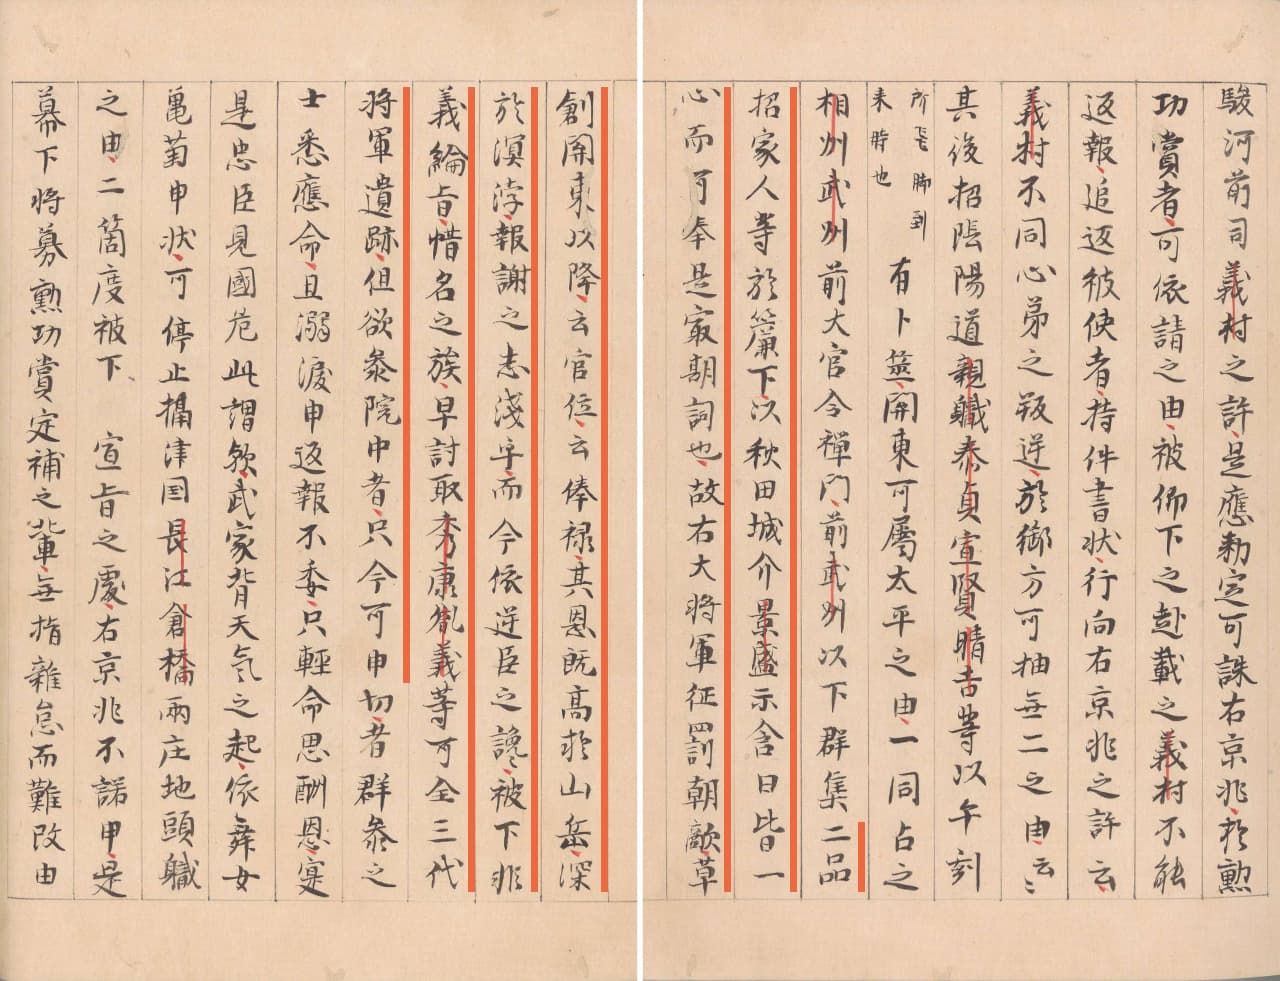 駿河前司義村之許是應勅定可誅右京兆於勲
功賞者可依請之由被仰下之趣載之義村不能
返報追返彼使者持件書状行向右京兆之許云
義村不同心弟之叛逆於御方可抽無二之由云〻
其後招陰陽道親職泰貞宣賢晴吉等以午刻
所飛脚到
来時也
有卜筮開東可属太平之由一同占之
相州武州前大官令禅門前武州以下群集二品
招家人等於簾下以秋田城介景盛示含曰皆一
心而可奉是㝡期詞也故右大将軍征罰朝敵草
創開東以降云官位云俸禄其恩既高於山岳深
於溟渤報謝之志淺乎而今依逆臣之讒被下非
義綸旨惜名之族早討取秀康胤義等可全三代
将軍遺跡但欲参院中者只今可申切者群参之
士悉應命且溺涙申返報不委只軽命思酬恩寔
是忠臣見國危此謂歟武家背天気之起依舞女
亀菊申状可停止摂津国長江倉橋両庄地頭軄
之由二箇度被下宣旨之處右京兆不諾申是
幕下将募勲功賞定補之輩無指雑怠而難改由